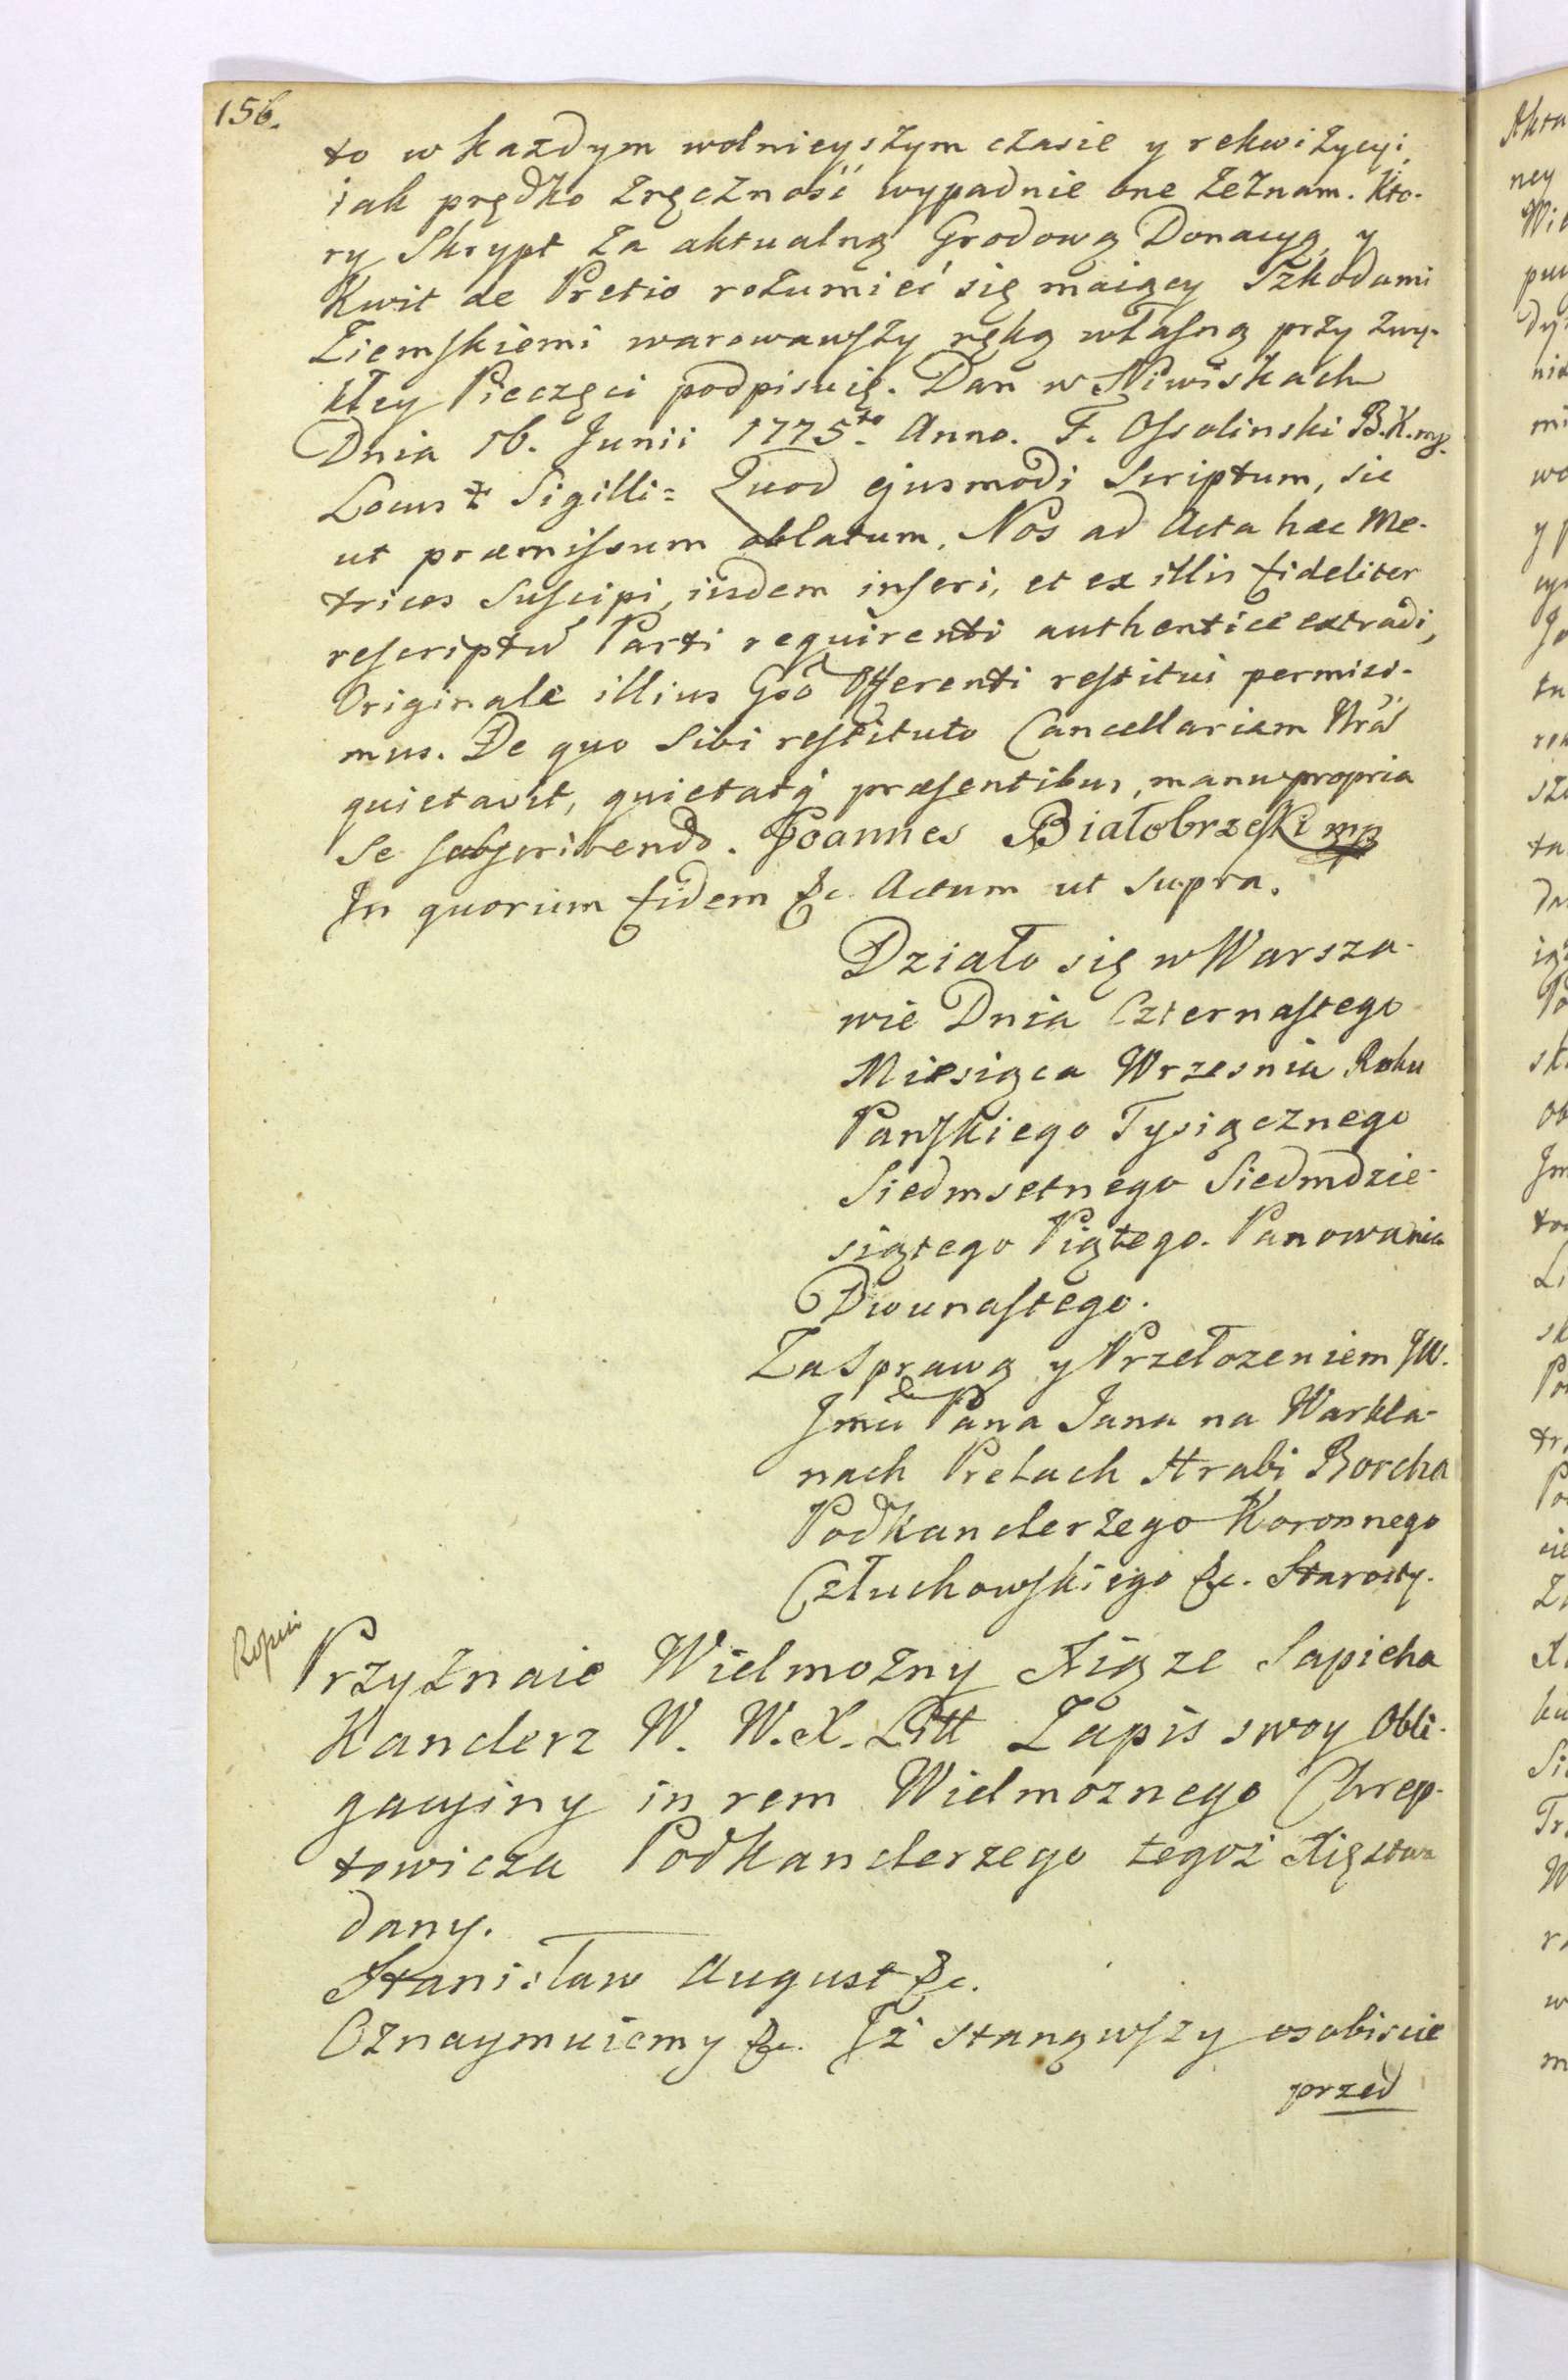 156.
to w każdym wolnieyszym czasie y rekwizycyi,
iak prędko zręczność wypadnie one zeznam. Kto-
ry Skrypt za aktualną Grodową Donacyą, y
Kwit de Pretio rozumieć się maiący Szkodami
Ziemskiemi warowawszy ręką własną przy zwy-
kłey Pieczęci podpisuię. Dan w Niwiskach
Dnia 16. Junii 1775to. Anno. F. Ossolinski B.K. mp.
Locus ‡ Sigilli = Quod ejusmodi Scriptum, sic
ut præmissum oblatum, Nos ad Acta hæc Me-
trices Suscipi, iisdem inseri, et ex illis fideliter
rescriptu Parti requirenti authentice extradi,
Originale illius Gso Offerenti restitui permisi-
mus. De quo Sibi restituto Cancellariam Nrã
quietavit, quietatq præsentibus, manu propria
se subscribendo. Joannes Białobrzeski mp
In quorum fidem &c. Actum ut supra.
Działo się w Warsza-
wie Dnia Czternastego
Miesiąca Wrzesnia Roku
Panskiego Tysiącznego
Siedmsetnego Siedmdzie-
siątego Piątego. Panowania
Dwunastego.
Za Sprawą y Przełozeniem JW.
Jmci Pana Jana na Warkla-
nach Prelach Hrabi Borcha
Podkanclerzego Koronnego
Człuchowskiego &c. Starosty.
Kopia
Przyznaie Wielmozny Xiąze Sapieha
Kanclerz W. W. X. Litt Zapis swoy Obli-
gacyiny in rem Wielmoznego Chrep-
towicza Podkanclerzego tegoż Xięstwa
dany.
Stanisław August &c.
Oznaymuiemy &c. Iż stanąwszy osobiscie
przed